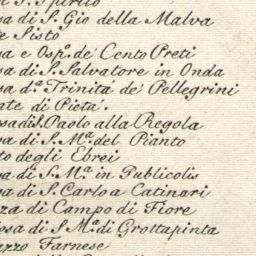 di S. Spirito
sa di S. Gio della Malva
te Sisto
sa e Osp.º de' Cento Preti
sa di S. Salvatore in Onda
sa d.ª Trinita de' Pellegrini
ate di Pieta'
esa di S. Paolo alla Regola
sa di S. M.ª del Pianto
to degli Ebrei
sa di S. M.ª in Publicolis
sa di S. Carlo a Catinari
zza di Campo di Fiore
iosa di S. M.ª di Grottapinta
azzo Farnese